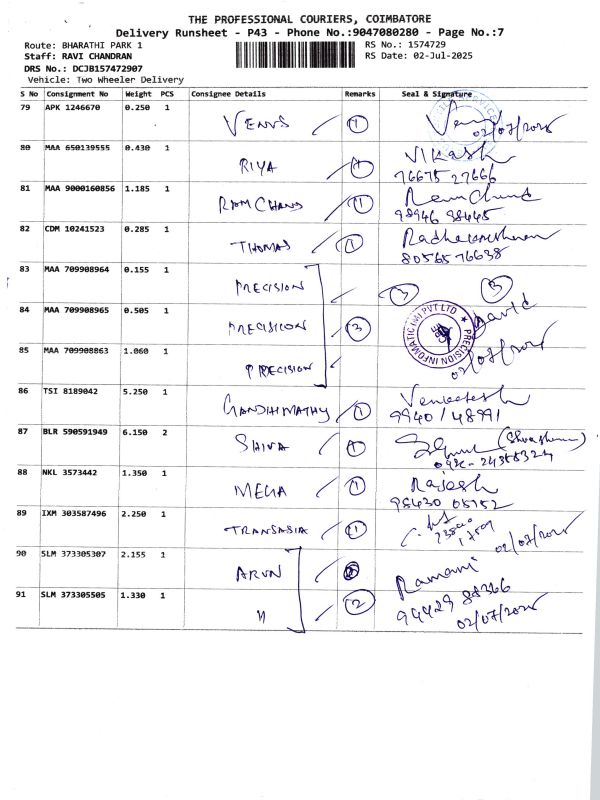 THE PROFESSIONAL COURIERS, COIMBATORE
Delivery Runsheet - P43 - Phone No.:9047080280 - Page No.:7
Route: BHARATHI PARK 1 RS No.: 1574729
Staff: RAVI CHANDRAN RS Date: 02-Jul-2025
DRS No.: DCJB157472907
Vehicle: Two Wheeler Delivery
S No Consignment No Weight PCS Consignee Details Remarks Seal & Signature
79 APK 1246670 0.250 1 VENUS 1 02/07/2025
80 MAA 650139555 0.430 1 RIYA 1 Vikash
76675 27666
81 MAA 9000160856 1.185 1 RAMCHAND 1 Ramchand
98946 98445
82 CDM 10241523 0.285 1 THOMAS 1 Radhakrishnan
80565 76638
83 MAA 709908964 0.155 1 PRECISION 3 3
84 MAA 709908965 0.505 1 PRECISION 3 PRECISION INFOMATIC (M) PVT LTD
85 MAA 709908863 1.060 1 PRECISION 02/07/2025
86 TSI 8189042 5.250 1 GANDHIMATHY 1 Venkatesh
9940148991
87 BLR 590591949 6.150 2 SHIVA 1
88 NKL 3573442 1.350 1 MEGA 1 Rajesh
98430 05752
89 IXM 303587496 2.250 1 TRANSASIA 1 02/07/2025
90 SLM 373305307 2.155 1 ARUN Ramani
91 SLM 373305505 1.330 1 " 2 94429 88366
02/07/2025